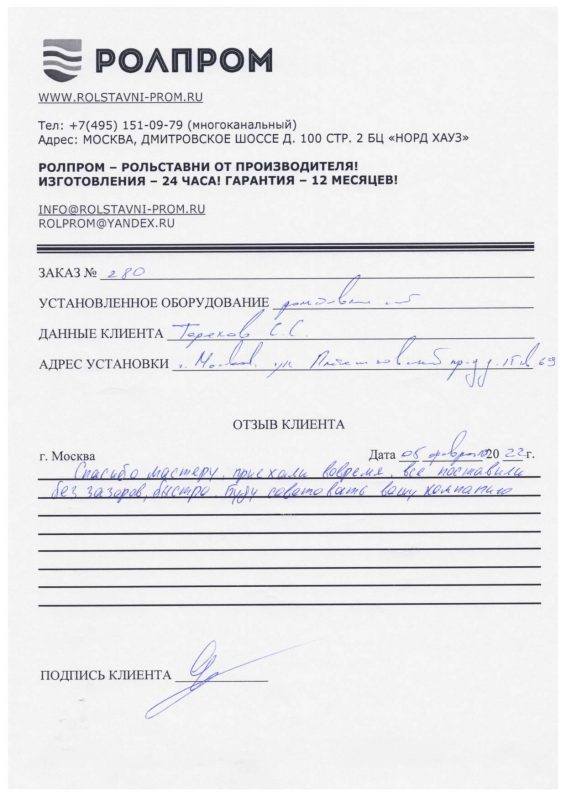 РОЛПРОМ
WWW.ROLSTAVNI-PROM.RU
Тел: +7(495) 151-09-79 (многоканальный)
Адрес: МОСКВА, ДМИТРОВСКОЕ ШОССЕ Д. 100 СТР. 2 БЦ «НОРД ХАУЗ»
РОЛПРОМ – РОЛЬСТАВНИ ОТ ПРОИЗВОДИТЕЛЯ!
ИЗГОТОВЛЕНИЯ – 24 ЧАСА! ГАРАНТИЯ – 12 МЕСЯЦЕВ!
INFO@ROLSTAVNI-PROM.RU
ROLPROM@YANDEX.RU
ЗАКАЗ № 280
УСТАНОВЛЕННОЕ ОБОРУДОВАНИЕ
ДАННЫЕ КЛИЕНТА Терехов С.С.
АДРЕС УСТАНОВКИ г. Москва
ОТЗЫВ КЛИЕНТА
г. Москва Дата 05 февраля 2022 г.
Спасибо мастеру. приехали вовремя. все поставили
без зазоров, быстро. буду советовать вашу компанию
ПОДПИСЬ КЛИЕНТА